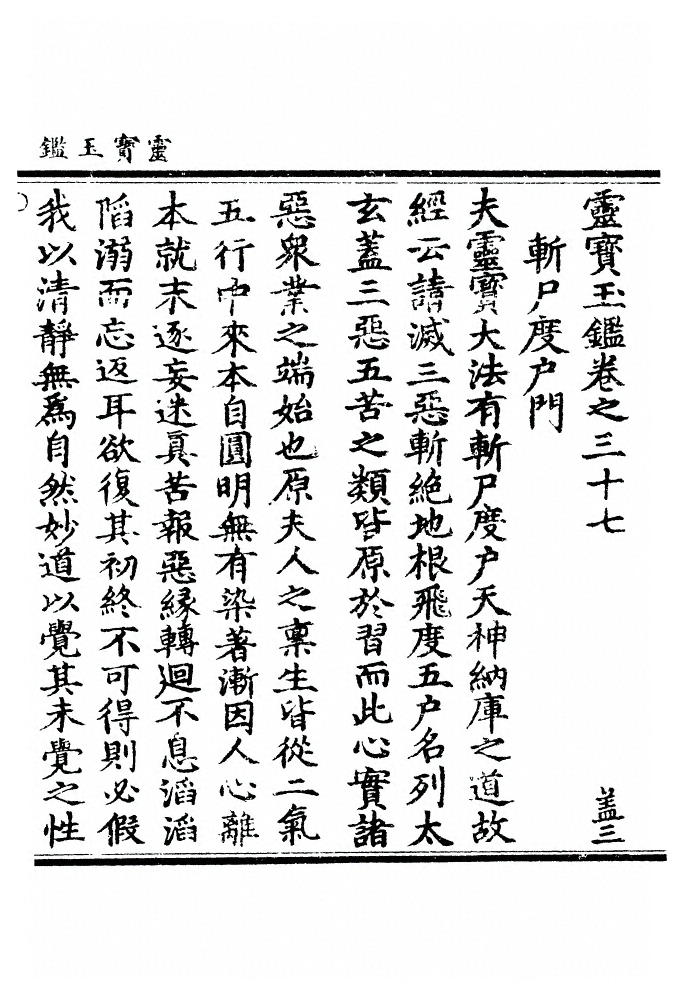 靈寶玉鑑
靈寶玉鑑卷之三十七
蓋三
斬尸度户門
夫靈寶大法有斬尸度户天神納庫之道故
經云請滅三惡斬絶地根飛度五户名列太
玄蓋三惡五苦之類皆原於習而此心實諸
惡衆業之端始也原夫人之稟生皆從二氣
五行中來本自圓明無有染著漸因人心離
本就末逐妄迷真苦報惡緣轉迴不息滔滔
陷溺而忘返耳欲復其初終不可得則必假
我以清靜無爲自然妙道以覺其未覺之性